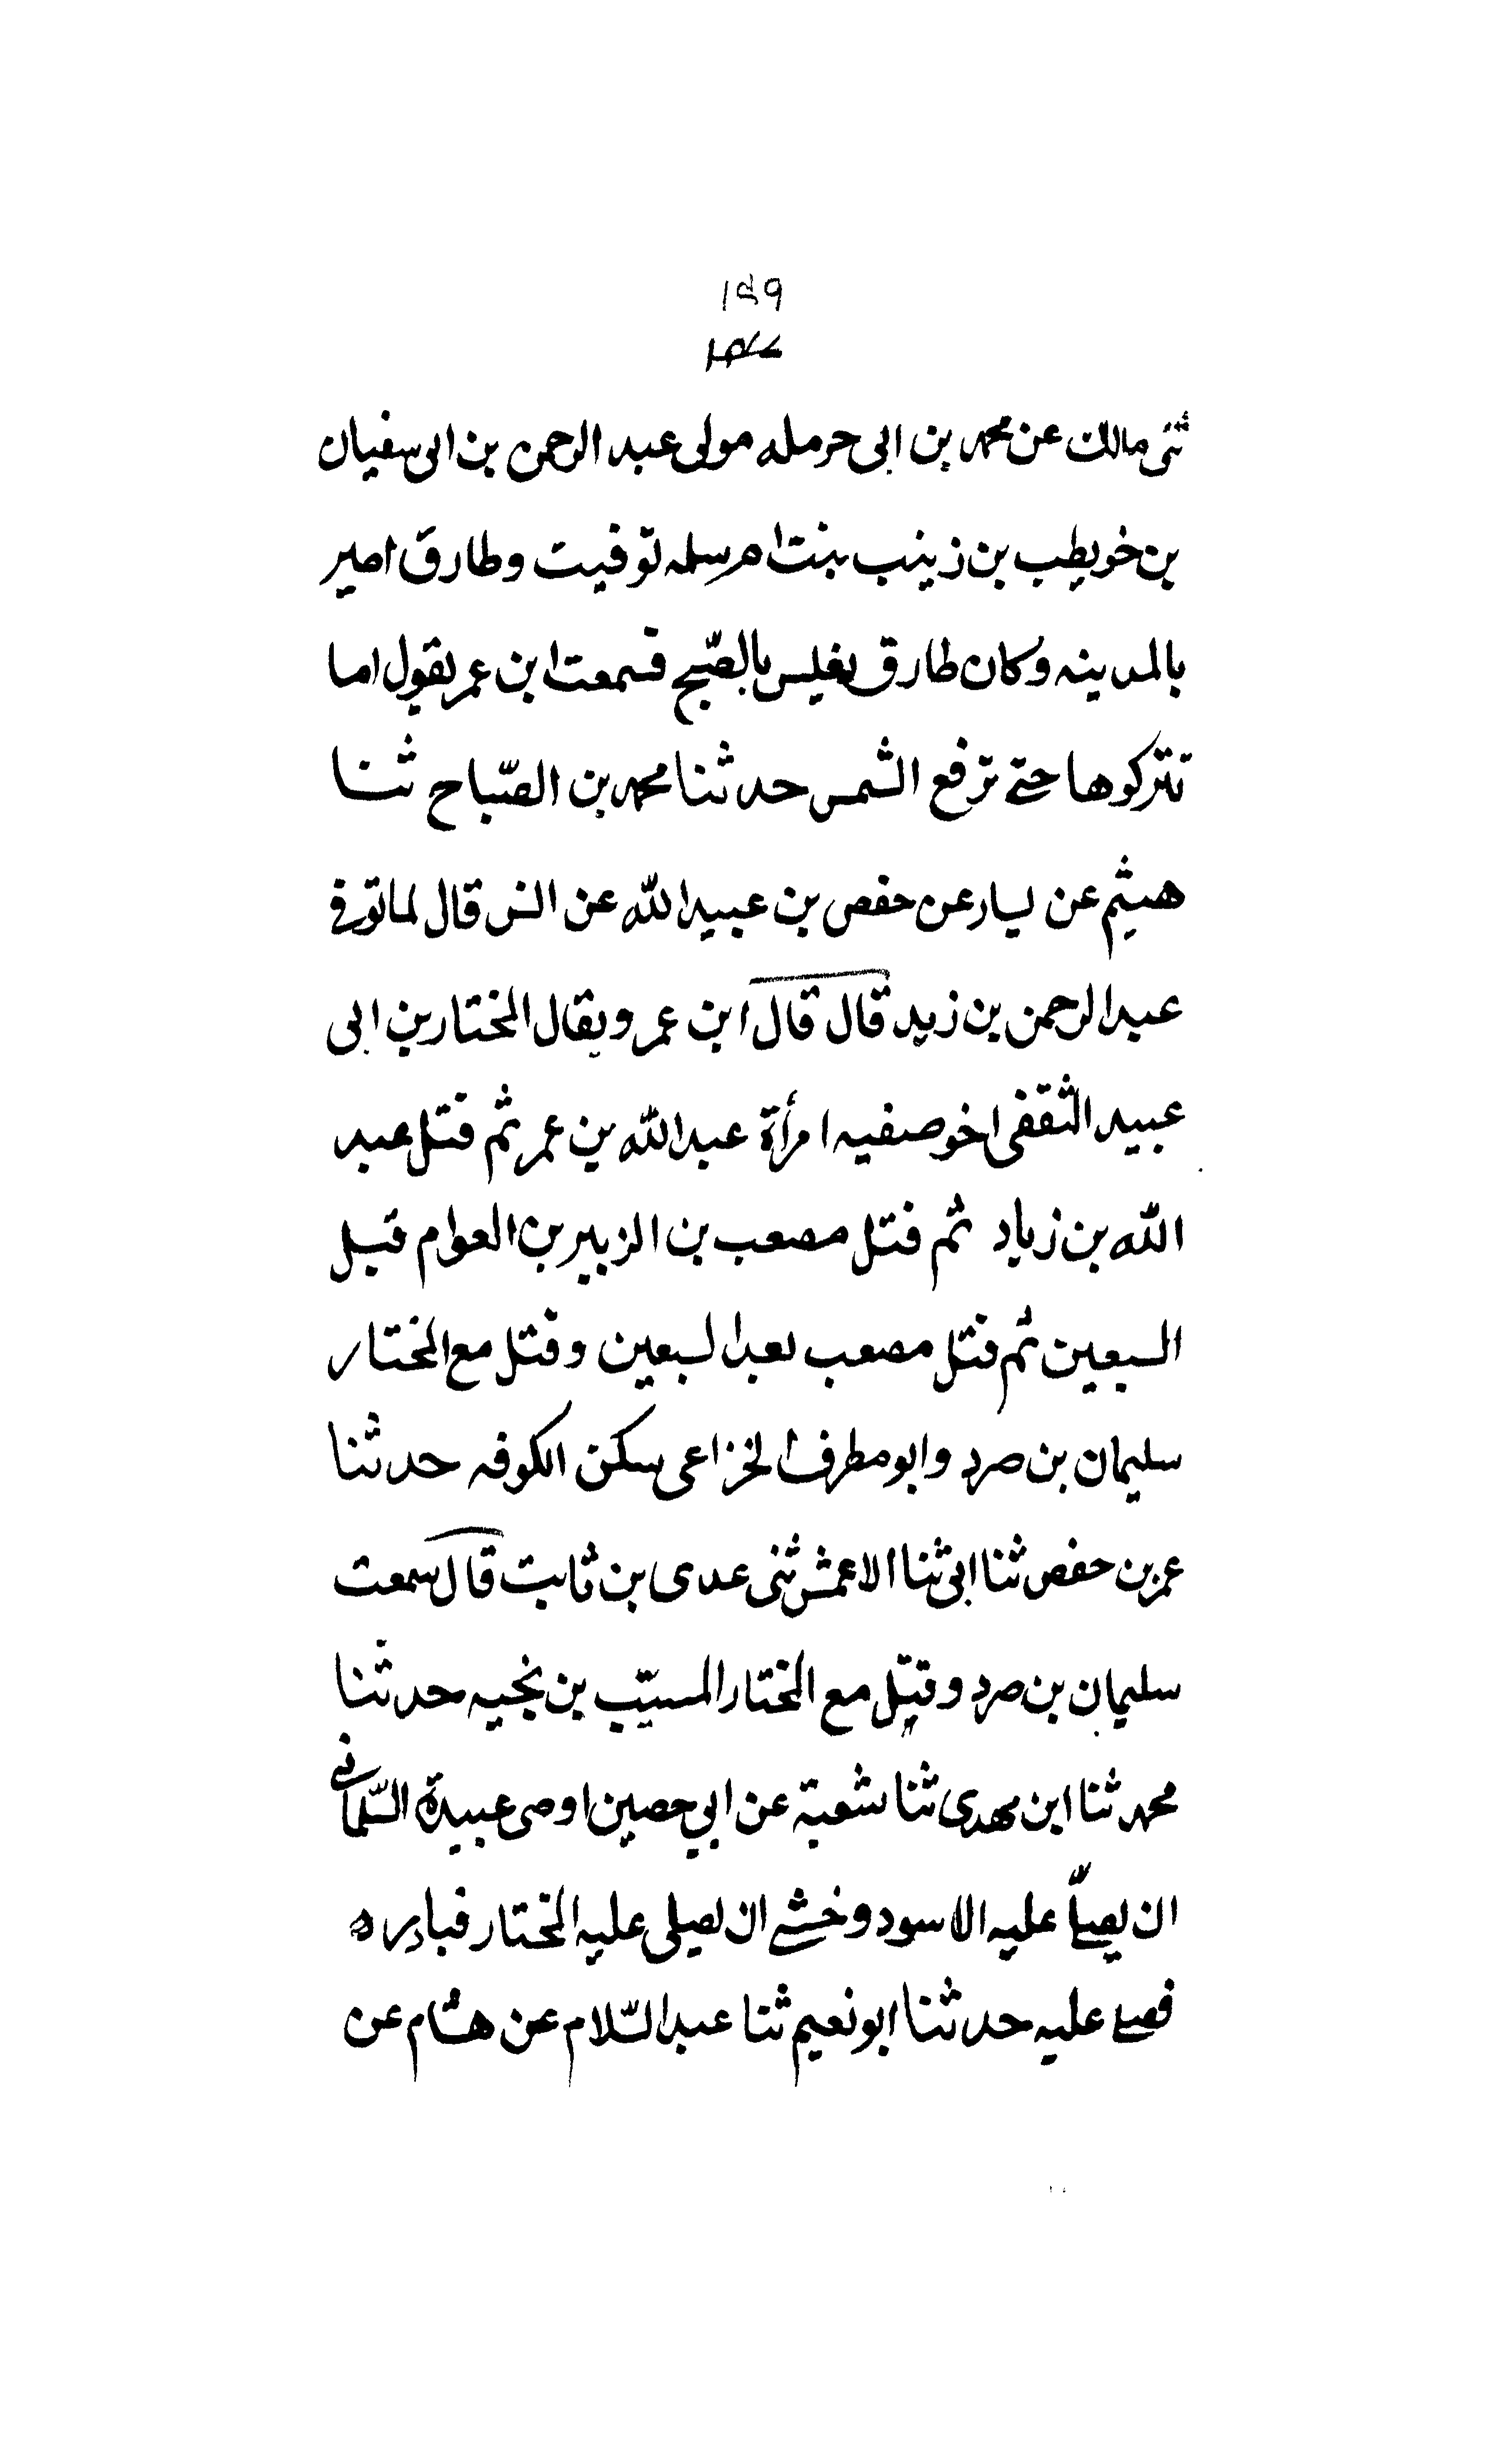 ١٤٩
ثنى مالك عن محمد بن ابى حرمله مولى عبد الرحمن بن ابى سفيان
بن خويطب بن زينب بنت ام سلمه توفيت وطارق امير
بالمدينه وكان طارق يغلس بالصّبح فسمعت ابن عمر يقول اما
تتركوها حتى ترفع الشمس حدثنا محمد بن الصّباح ثنا
هشيم عن يسار عن حفص بن عبيد الله عن انس قال لما توفى
عبد الرحمن بن زيد قال قال ابن عمر ويقال المختار بن ابى
عبيد الثقفى اخو صفيه امرأة عبد الله بن عمر ثم قتل عبد
الله بن زياد ثم قتل مصعب بن الزبير بن العوام قبل
السبعين ثم قتل مصعب بعد السبعين وقتل مع المختار
سليمان بن صرد وابو مطرف الخزاعى سكن الكوفه حدثنا
عمر بن حفص ثنا ابى ثنا الاعمش ثنى عدى بن ثابت قال سمعت
سليمان بن صرد وقتل مع المختار المسيّب بن نجيه حدثنا
محمد ثنا ابن مهدى ثنا شعبة عن ابي حصين اوصى عبيدة السّلمانى
ان يصلّى عليه الاسود وخشى ان يصلى عليه المختار فبادره
فصلى عليه حدثنا ابو نعيم ثنا عبد السّلام عن هشام عن